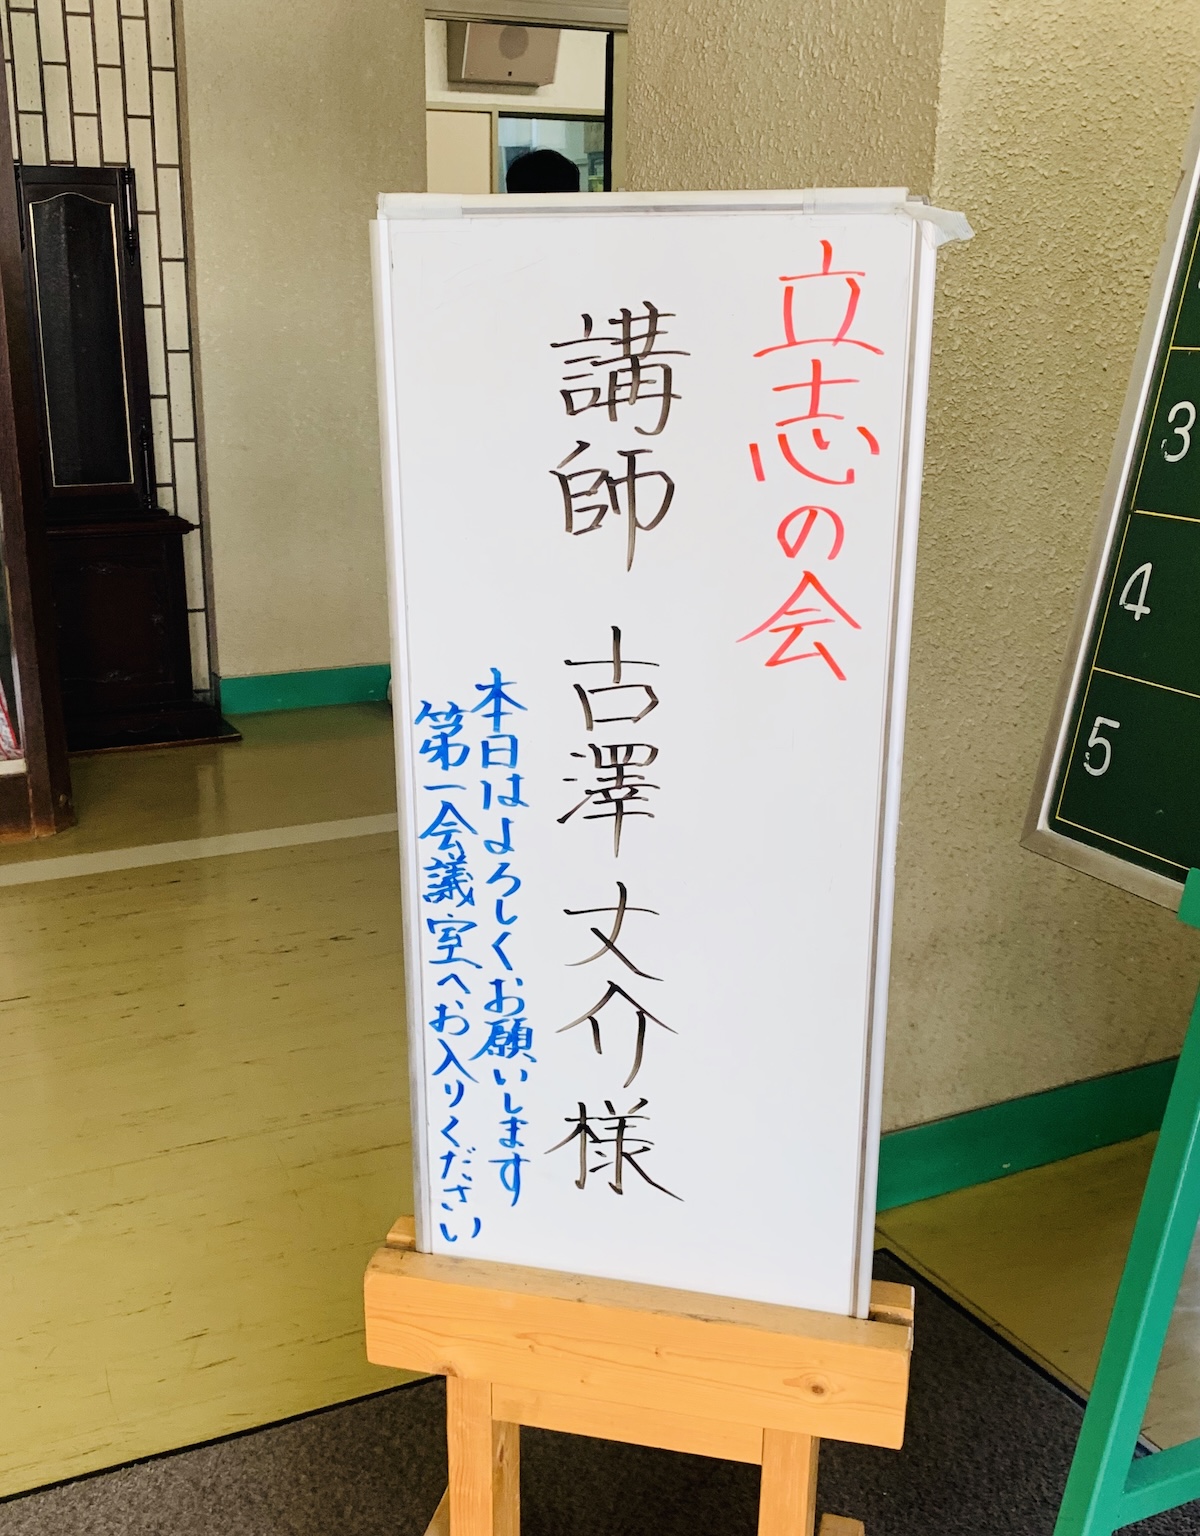 立志の会
講師 古澤丈介様
本日はよろしくお願いします
第一会議室へお入りください
3
4
5